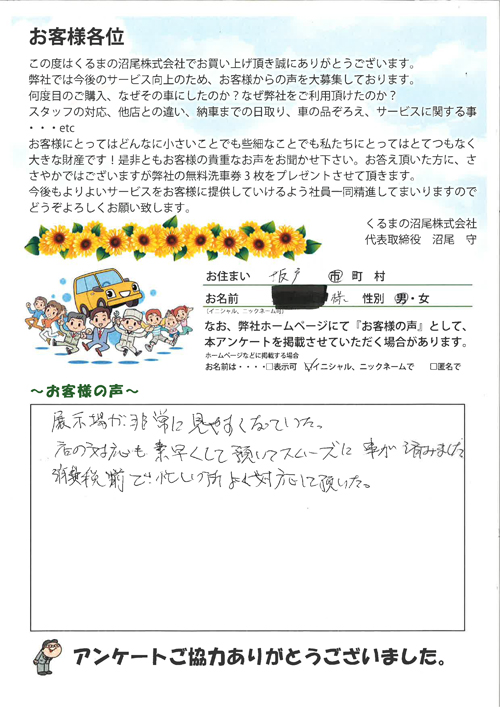 お客様各位
この度はくるまの沼尾株式会社でお買い上げ頂き誠にありがとうございます。
弊社では今後のサービス向上のため、お客様からの声を大募集しております。
何度目のご購入、なぜその車にしたのか？なぜ弊社をご利用頂けたのか？
スタッフの対応、他店との違い、納車までの日取り、車の品ぞろえ、サービスに関する事
・・・etc
お客様にとってはどんなに小さいことでも些細なことでも私たちにとってはとてつもなく
大きな財産です！是非ともお客様の貴重なお声をお聞かせ下さい。お答え頂いた方に、さ
さやかではございますが弊社の無料洗車券３枚をプレゼントさせて頂きます。
今後もよりよいサービスをお客様に提供していけるよう社員一同精進してまいりますので
どうぞよろしくお願い致します。
くるまの沼尾株式会社
代表取締役　沼尾　守
お住まい 坂戸 市 町 村
お名前 様 性別 男・女
(イニシャル、ニックネーム可)
なお、弊社ホームページにて『お客様の声』として、
本アンケートを掲載させていただく場合があります。
ホームページなどに掲載する場合
お名前は・・・・□表示可 ☑イニシャル、ニックネームで □匿名で
～お客様の声～
展示場が非常に見やすくなっていた。
店の対応も素早くして頂いてスムーズに車が済みました
消費税前で忙しい所よく対応して頂いた。
アンケートご協力ありがとうございました。